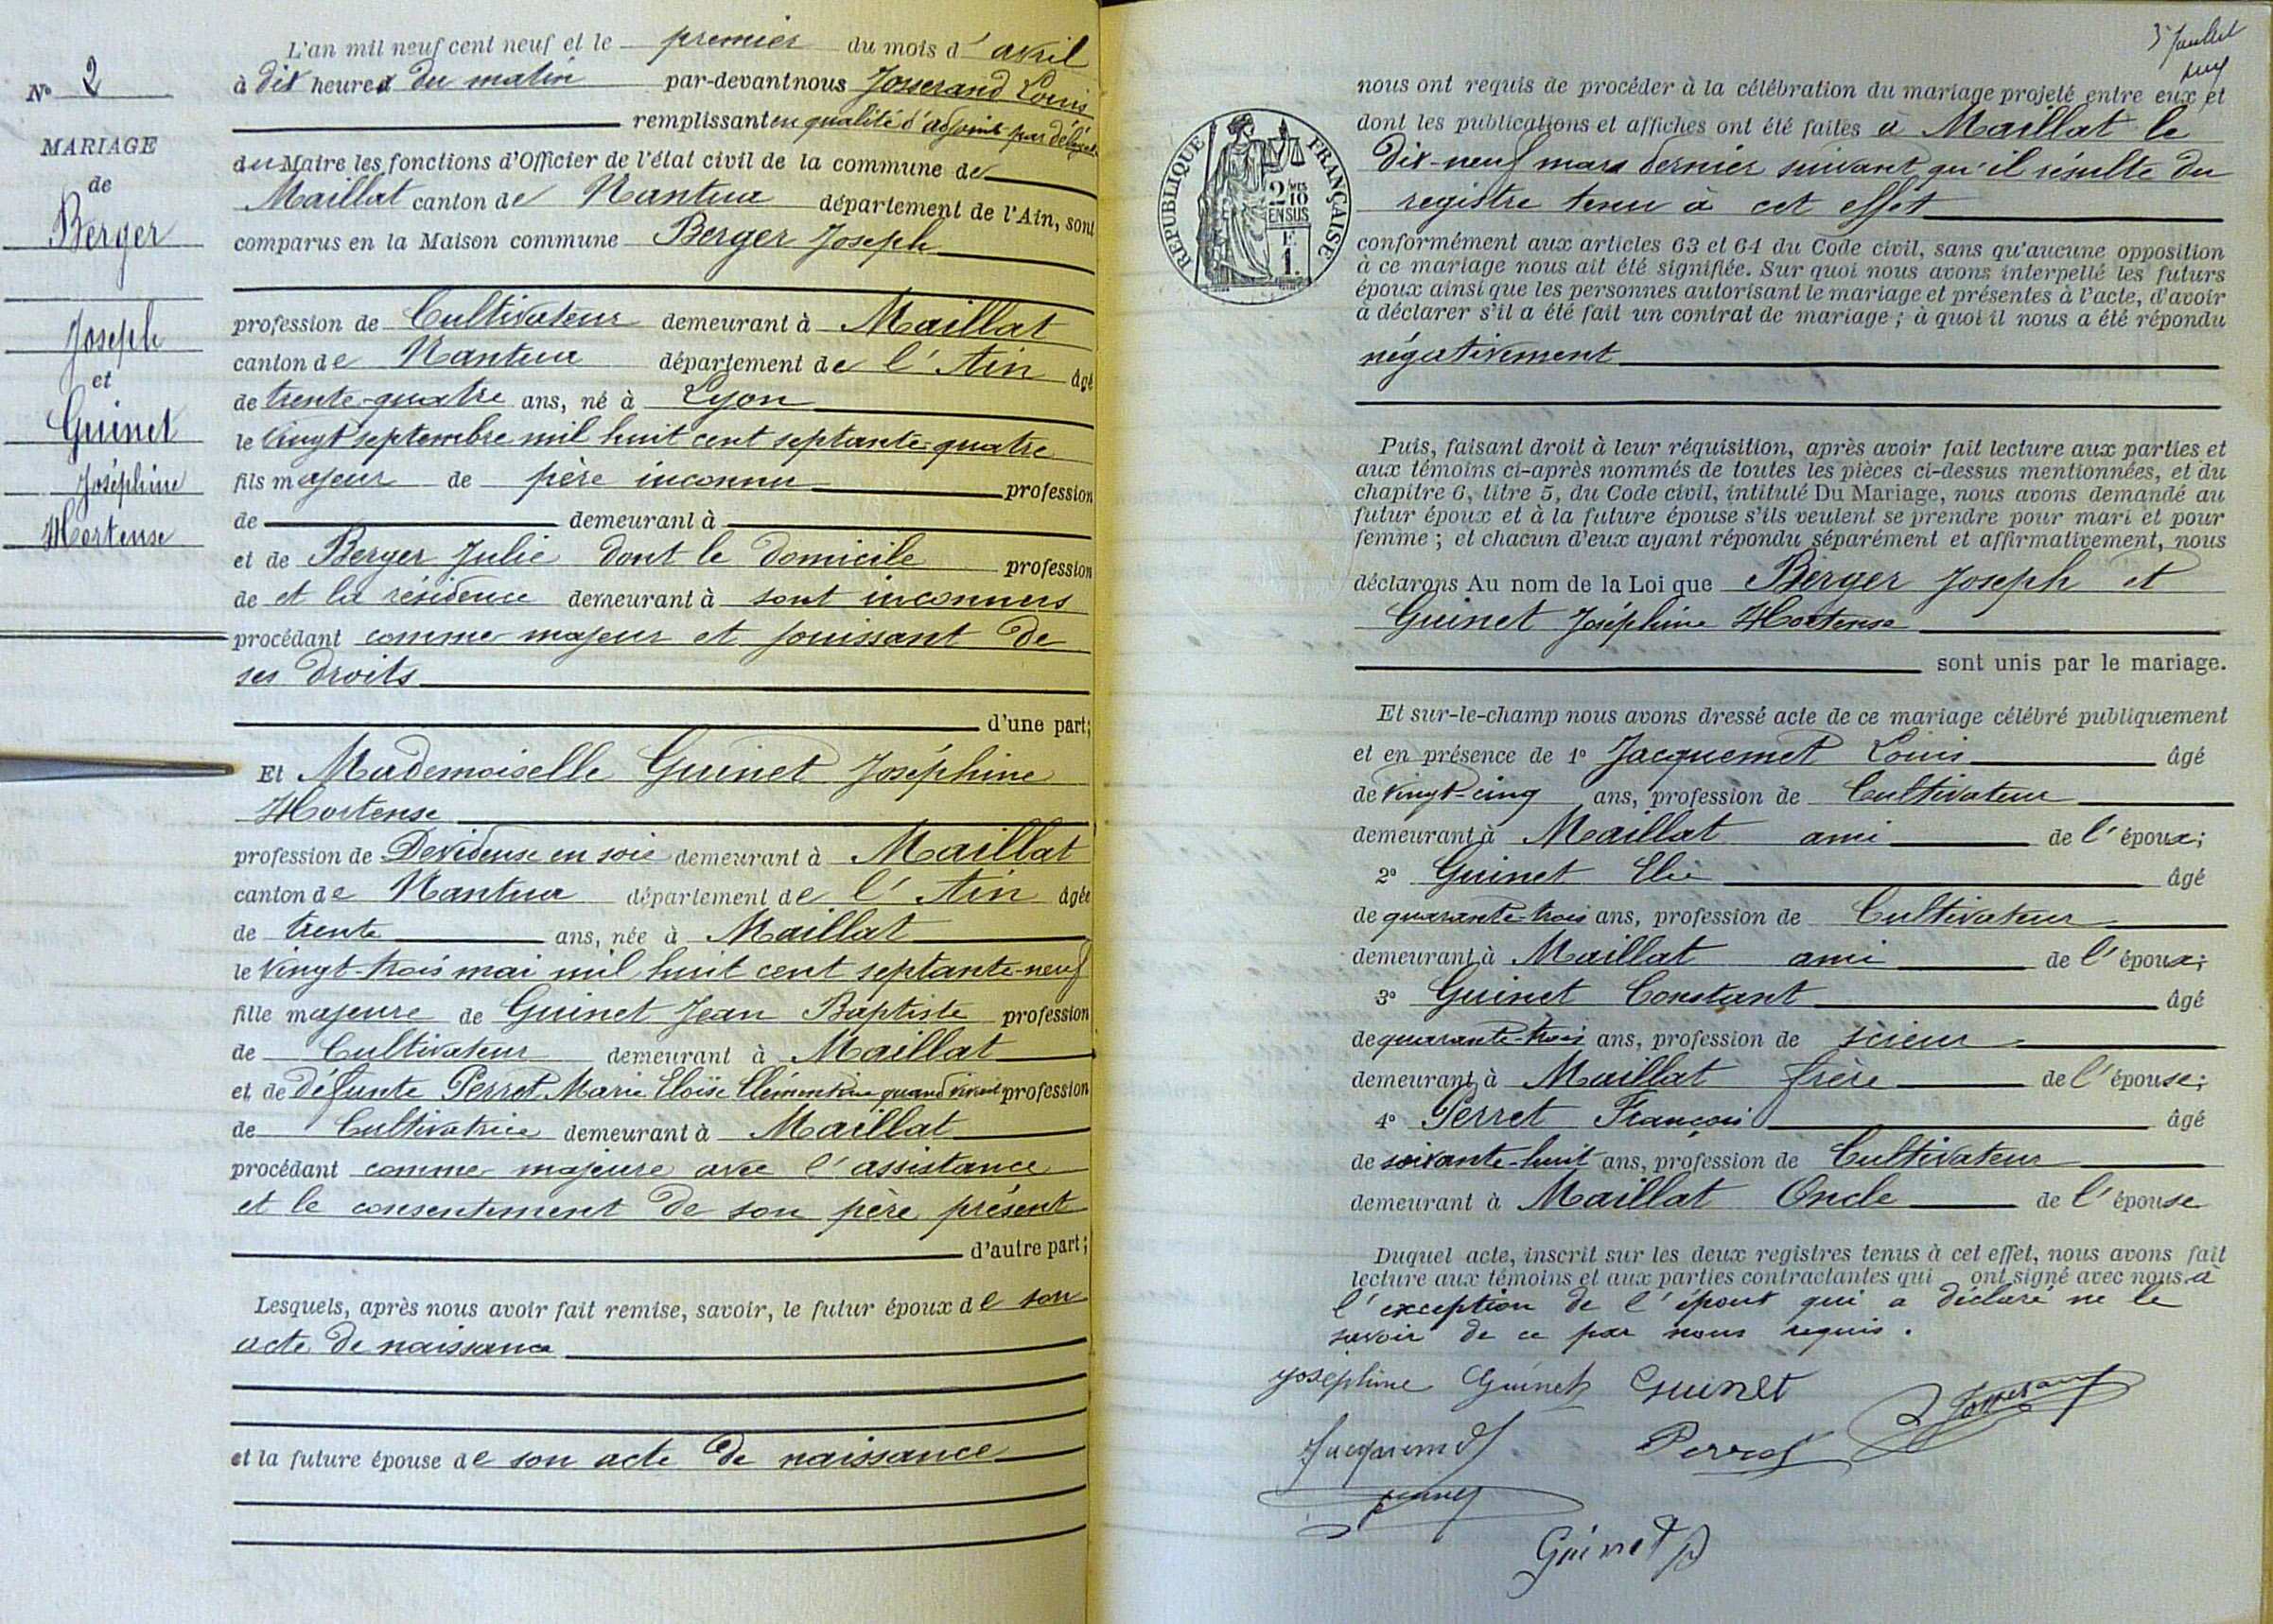 N° 2
MARIAGE
de
Berger
Joseph
et
Guinet
Joséphine
Hortense
L'an mil neuf cent neuf et le premier du mois d'avril
à dix heures du matin par-devant nous Josserand Louis
remplissant en qualité d'adjoint par délégué
du Maire les fonctions d'Officier de l'état civil de la commune de
Maillat canton de Nantua département de l'Ain, sont
comparus en la Maison commune Berger Joseph
profession de Cultivateur demeurant à Maillat
canton de Nantua département de l'Ain âgé
de trente-quatre ans, né à Lyon
le vingt septembre mil huit cent septante-quatre
fils majeur de père inconnu profession
de demeurant à
et de Berger Julie dont le domicile profession
de et la résidence demeurant à sont inconnus
procédant comme majeur et jouissant de
ses droits
d'une part;
Et Mademoiselle Guinet Joséphine
Hortense
profession de Devideuse en soie demeurant à Maillat
canton de Nantua département de l'Ain âgée
de trente ans, née à Maillat
le vingt-trois mai mil huit cent septante-neuf
fille majeure de Guinet Jean Baptiste profession
de Cultivateur demeurant à Maillat
et de défunte Perret Marie Eloïse Clémentine quand vivait profession
de Cultivatrice demeurant à Maillat
procédant comme majeure avec l'assistance
et le consentement de son père présent
d'autre part;
Lesquels, après nous avoir fait remise, savoir, le futur époux de son
acte de naissance
et la future épouse de son acte de naissance
nous ont requis de procéder à la célébration du mariage projeté entre eux et
dont les publications et affiches ont été faites à Maillat le
dix-neuf mars dernier suivant qu'il résulte du
registre tenu à cet effet
REPUBLIQUE FRANÇAISE
2/10 MES
EN SUS
F.
1.
conformément aux articles 63 et 64 du Code civil, sans qu'aucune opposition
à ce mariage nous ait été signifiée. Sur quoi nous avons interpellé les futurs
époux ainsi que les personnes autorisant le mariage et présentes à l'acte, d'avoir
à déclarer s'il a été fait un contrat de mariage ; à quoi il nous a été répondu
négativement
Puis, faisant droit à leur réquisition, après avoir fait lecture aux parties et
aux témoins ci-après nommés de toutes les pièces ci-dessus mentionnées, et du
chapitre 6, titre 5, du Code civil, intitulé Du Mariage, nous avons demandé au
futur époux et à la future épouse s'ils veulent se prendre pour mari et pour
femme ; et chacun d'eux ayant répondu séparément et affirmativement, nous
déclarons Au nom de la Loi que Berger Joseph et
Guinet Joséphine Hortense
sont unis par le mariage.
Et sur-le-champ nous avons dressé acte de ce mariage célébré publiquement
et en présence de 1° Jacquemet Louis âgé
de vingt-cinq ans, profession de Cultivateur
demeurant à Maillat ami de l'époux;
2° Guinet Elie âgé
de quarante-trois ans, profession de Cultivateur
demeurant à Maillat ami de l'époux;
3° Guinet Constant âgé
de quarante-trois ans, profession de scieur
demeurant à Maillat frère de l'épouse;
4° Perret François âgé
de soixante-huit ans, profession de Cultivateur
demeurant à Maillat Oncle de l'épouse
Duquel acte, inscrit sur les deux registres tenus à cet effet, nous avons fait
lecture aux témoins et aux parties contractantes qui ont signé avec nous à
l'exception de l'époux qui a déclaré ne le
savoir de ce par nous requis.
Joséphine Guinet Guinet
L Josserand
Jacquemet Perret
Guinet